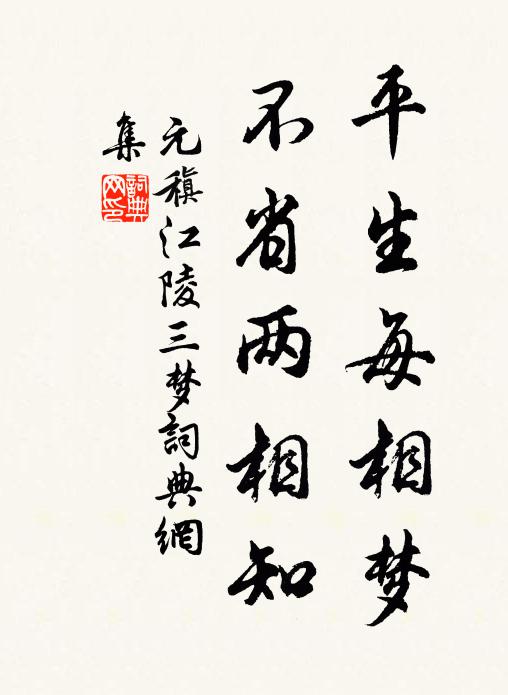 平生每相梦
不省两相知
元稹江陵三梦詞典網
集
詞典
网印